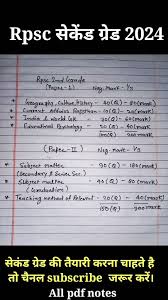 Rpsc सेकेंड ग्रेड 2024
Rpsc 2nd Grade
(Paper - I) Neg. Mark - 1/3
* Geography, Culture, History - 40(Q) - 80(mark)
* Current Affairs Rajasthan - 10(Q) - 20(mark)
* India & World GK - 30(Q) - 60(mark)
* Educational Psychology - 20(Q) - 40(mark)
100(Q) 200(mark)
(Paper - II) Neg. Mark - 1/3
* Subject matter - 90(Q) - 180(mark)
(Secondary & Senior Sec.)
* Subject matter - 40(Q) - 80(mark)
(Graduation)
* Teaching method of Relevant - 20(Q) - 40(mark)
150(Q) 300
सेकंड ग्रेड की तैयारी करना चाहते है
तो चैनल subscribe जरूर करें।
All pdf notes